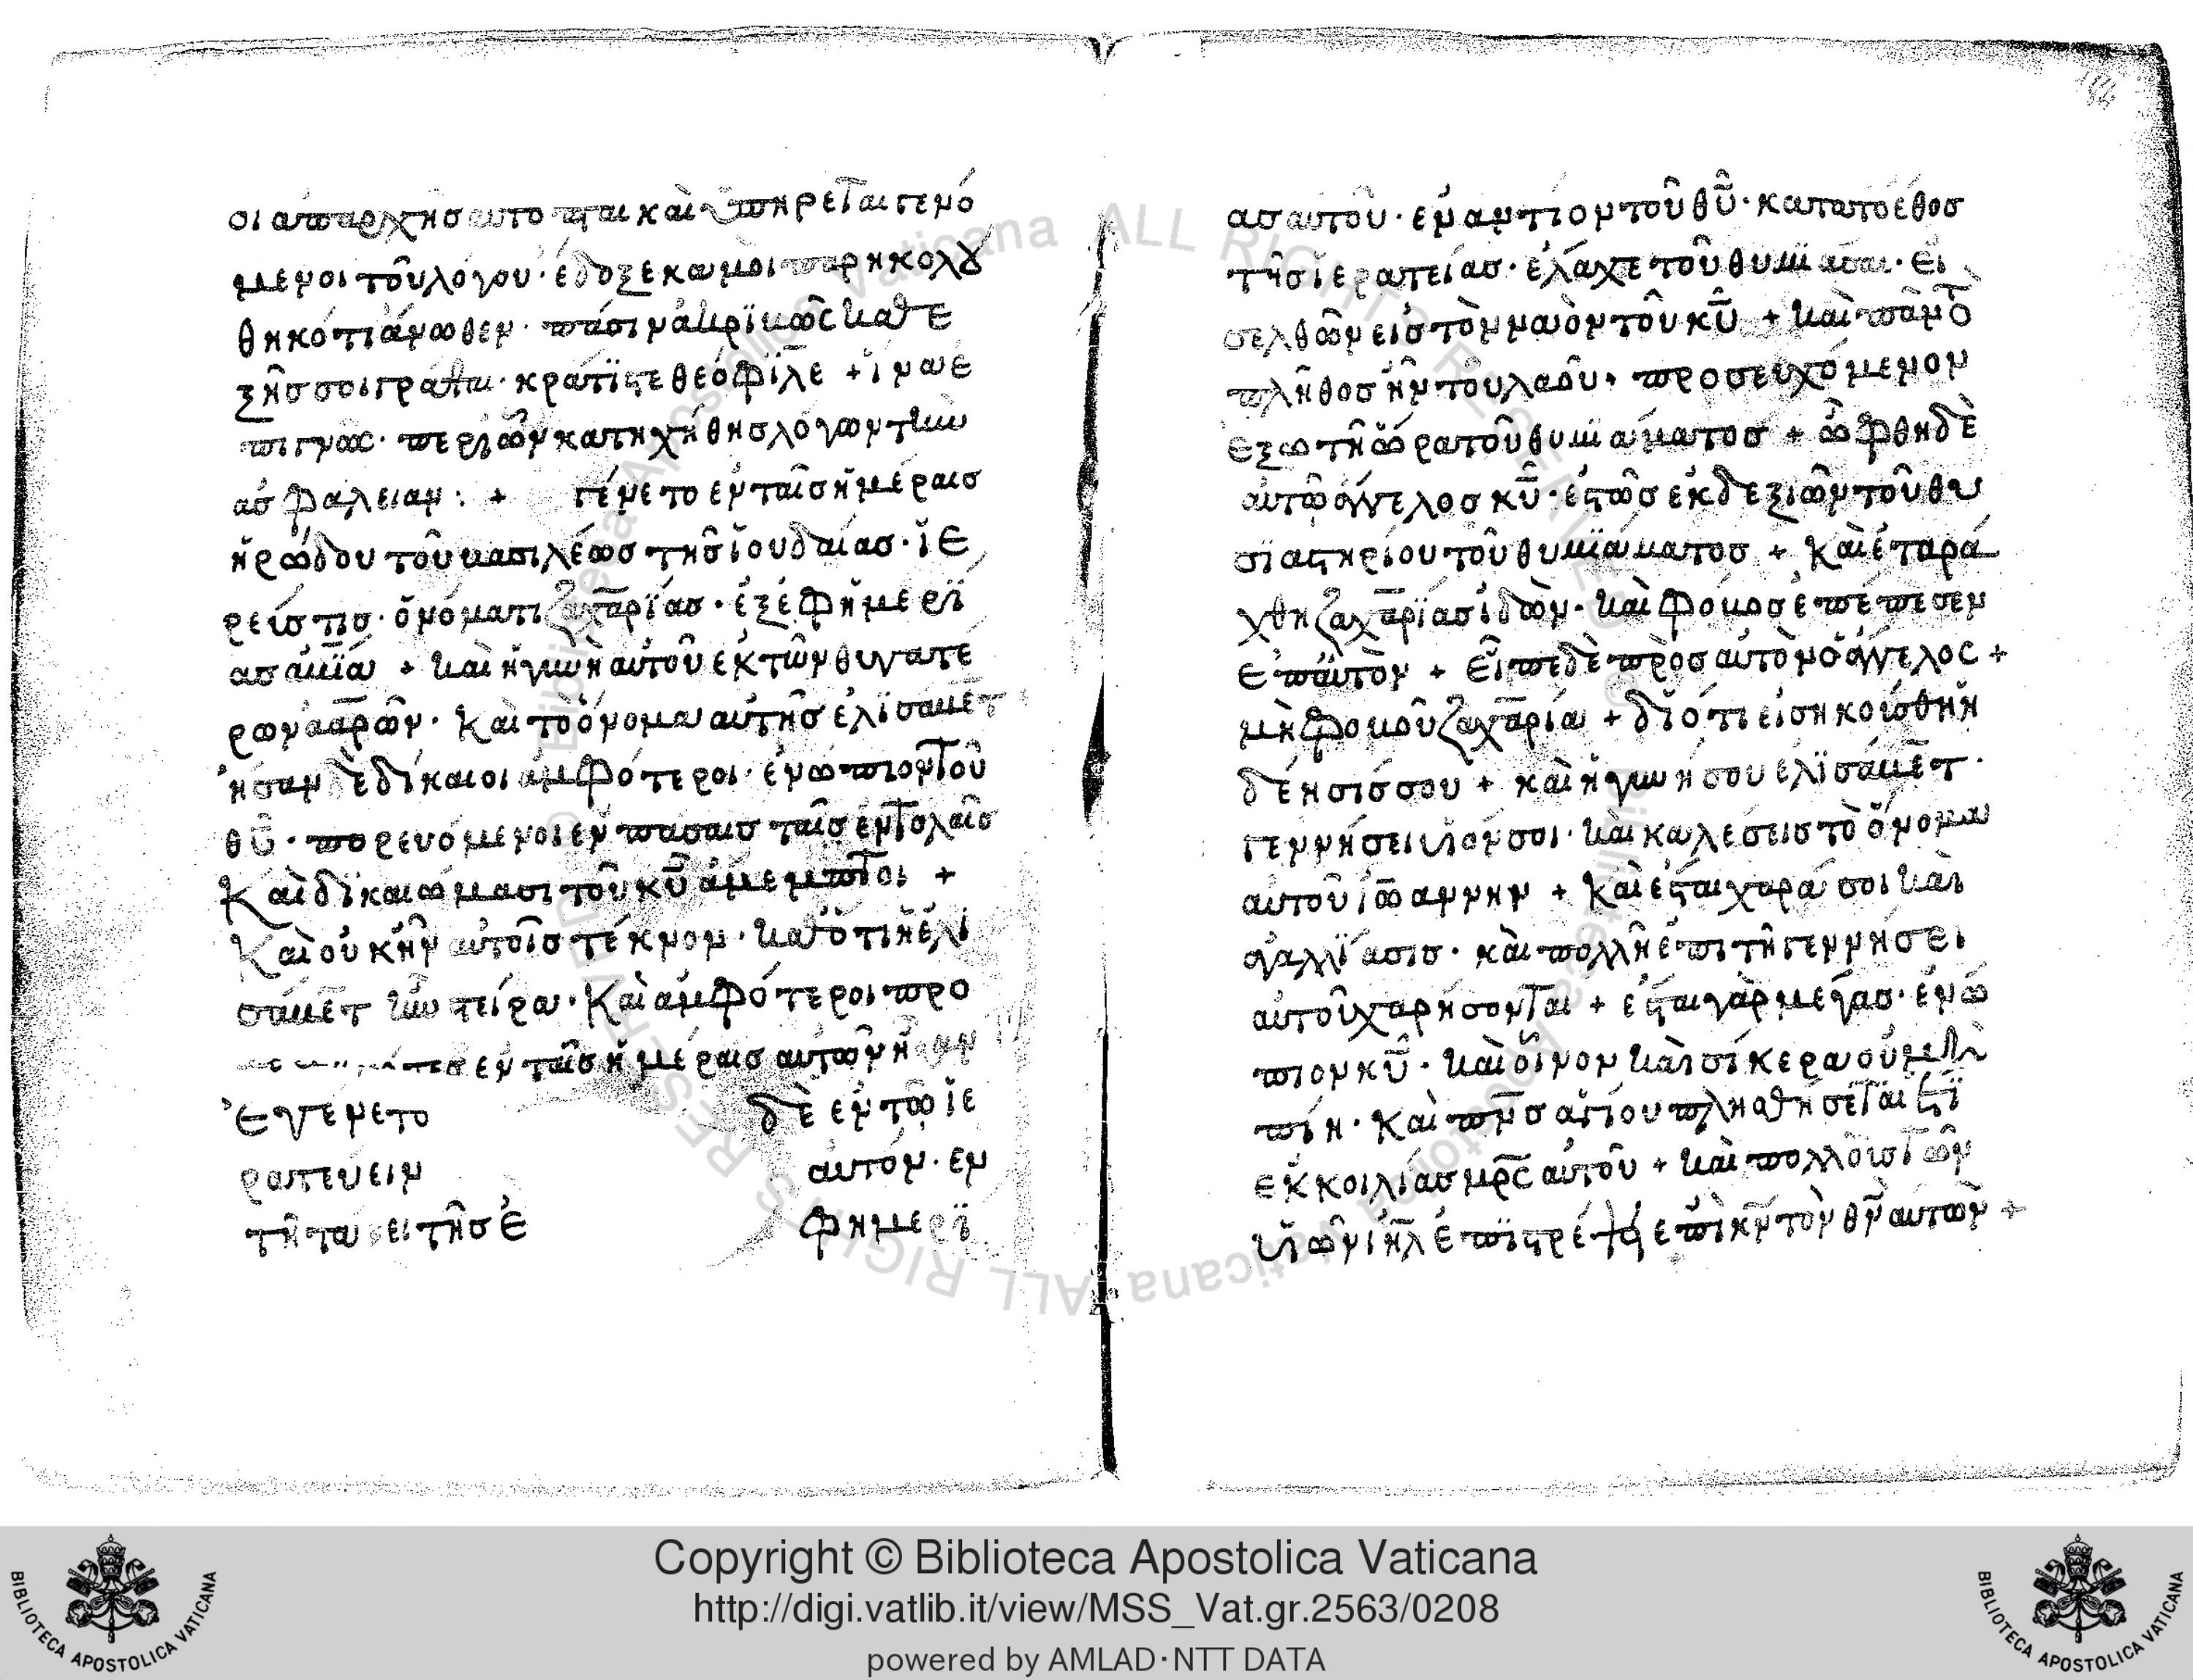 οι απαρχησ αυτοπται και ϋπηρεται γενό
μενοι τοῦ λόγου· έδοξε καμοι παρηκολȣ
θηκότι άνωθεν· πάσιν ἀκρϊκῶς καθε
ξῆσ σοι γράψαι· κράτϊστε θεόφϊλε + ἵνα έ
πιγνως· περι ὧν κατηχήθησ λόγων τὴν
ασφαλειαν: + γένετο εν ταῖσ ἡμέραισ
ἡρώδου τοῦ βασιλέωσ τησ ἰουδαίασ· ἱε
ρεύσ τισ· ὀνόματι ζαχαρϊασ· εξ έφημερϊ
ασ ἀβϊά + και ἡ γυνη αυτοῦ εκ τῶν θυγατε
ρων ααρῶν· Και τὸ όνομα αυτῆσ ἐλϊσαβετ
ἠσαν δὲ δίκαιοι ἀμφότεροι· ἐνώπιον τοῦ
θῦ· πορευόμενοι εν πασαισ ταῖσ ἐντολαῖσ
Και δϊκαιώμασι τοῦ κῦ ἀμεμπτοι +
Και ουκ ἦν αυτοῖσ τέκνον· καθότι ἡ ἐλι
σάβετ ἦν στείρα· Και ἀμφότεροι προ
εν ταῖσ ἡμέραισ αυτῶν ἠσαν
Ἐγενετο δὲ εν τῶ ἱε
ρατευειν αυτόν· εν
τῆ ταξει τῆσ ἐ φημερϊ
ασ αυτοῦ· ἐναντίον τοῦ θῦ· κατα το έθοσ
τῆσ ἱερατείασ· ἐλάχε τοῦ θυμϊασαι· ει
σελθῶν εισ τὸν ναὸν τοῦ κῦ + και πᾶν τὸ
πλῆθοσ ἦν τοῦ λαοῦ· προσευχόμενον
ἐξω τῆ ὥρα τοῦ θυμϊαματοσ + ὤφθη δὲ
αυτῶ ἀγγελοσ κῦ· ἑστῶσ ἐκ δεξιῶν τοῦ θυ
σϊαστηρίου τοῦ θυμϊάματοσ + Και ἐταρά
χθη ζαχαρϊασ ἰδὼν· και φοβοσ ἐπέπεσεν
επ αυτὸν + Εἶπε δὲ πρὸσ αυτὸν ὁ ἀγγελος +
μὴ φοβοῦ ζαχαρία + δϊότι εισηκούσθη ἡ
δέησίσ σου + και ἡ γυνή σου ελϊσάβετ·
γεννήσει υἱόν σοι· και καλέσεισ τὸ όνομα
αυτοῦ ἰωαννην + Και ἐσται χαρά σοι και
ἀγαλλϊασισ· και πολλοὶ ἐπι τῆ γεννήσει
αυτοῦ χαρήσονται + ἐσται γὰρ μεγασ· ἐνώ
πιον κῦ· Και οἶνον και σίκερα ου μη
πίη· Και πνσ αγίου πλησθήσεται ἐτϊ
εκ κοιλίασ μρς αυτοῦ + και πολλοὺσ τῶν
υἱῶν ιηλ ἐπϊστρέψει επι κν τὸν θν αυτῶν +
Copyright © Biblioteca Apostolica Vaticana
http://digi.vatlib.it/view/MSS_Vat.gr.2563/0208
powered by AMLAD·NTT DATA
BIBLIOTECA APOSTOLICA VATICANA
BIBLIOTECA APOSTOLICA VATICANA